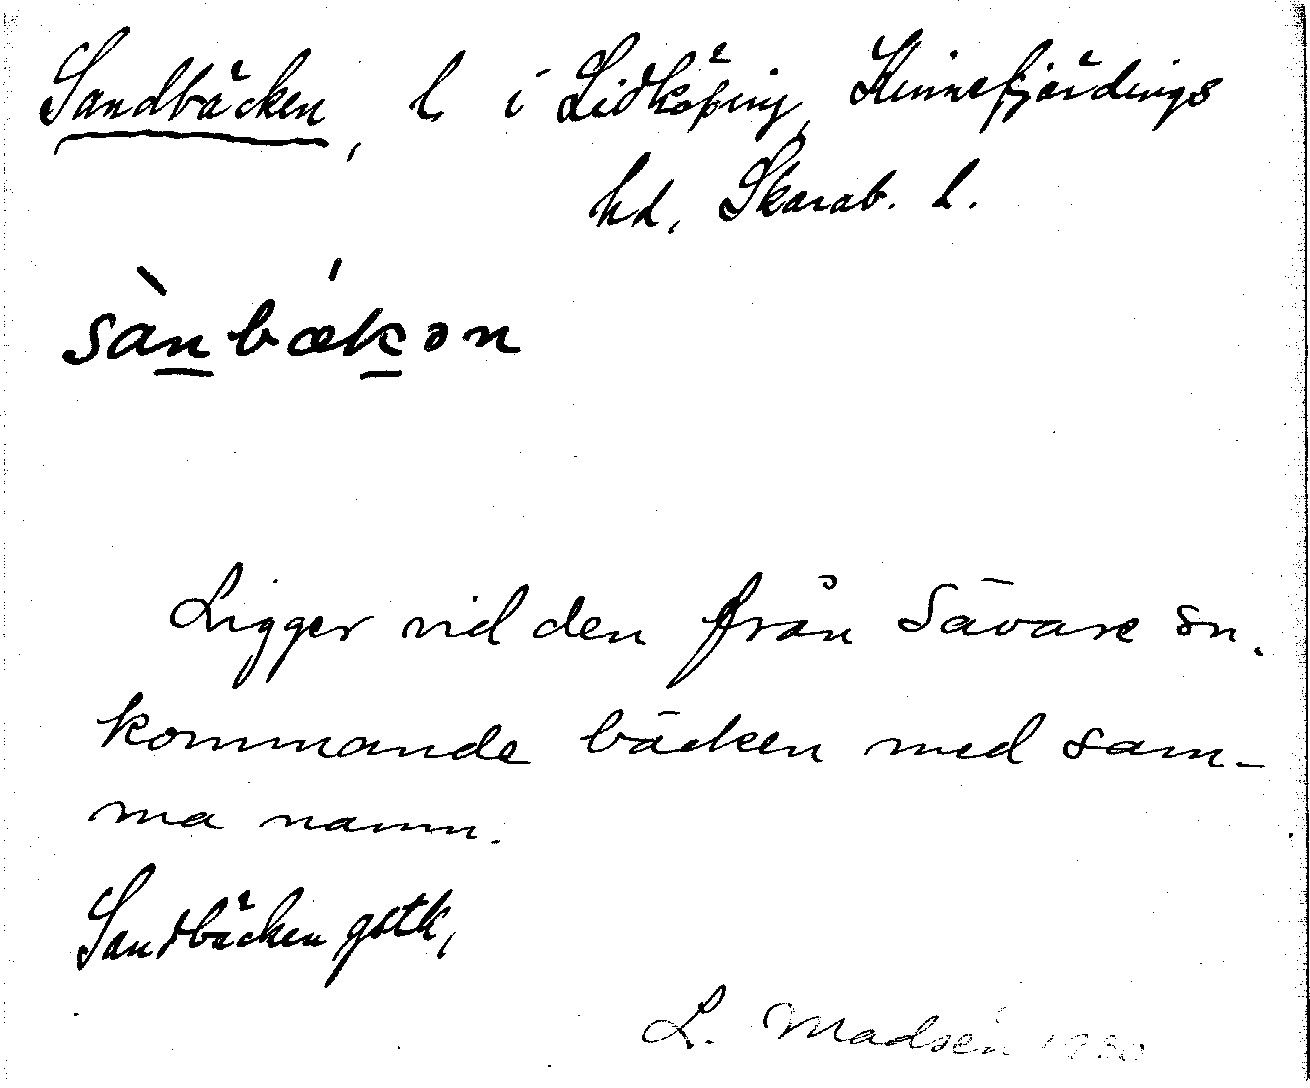 Sandbäcken, l i Lidköping, Kinnefjärdings
hd, Skarab. l.
sànbǽkən
Ligger vid den från Sävare sn.
kommande bäcken med sam-
ma namn.
Sandbäcken gstk,
L. Madsén 1930